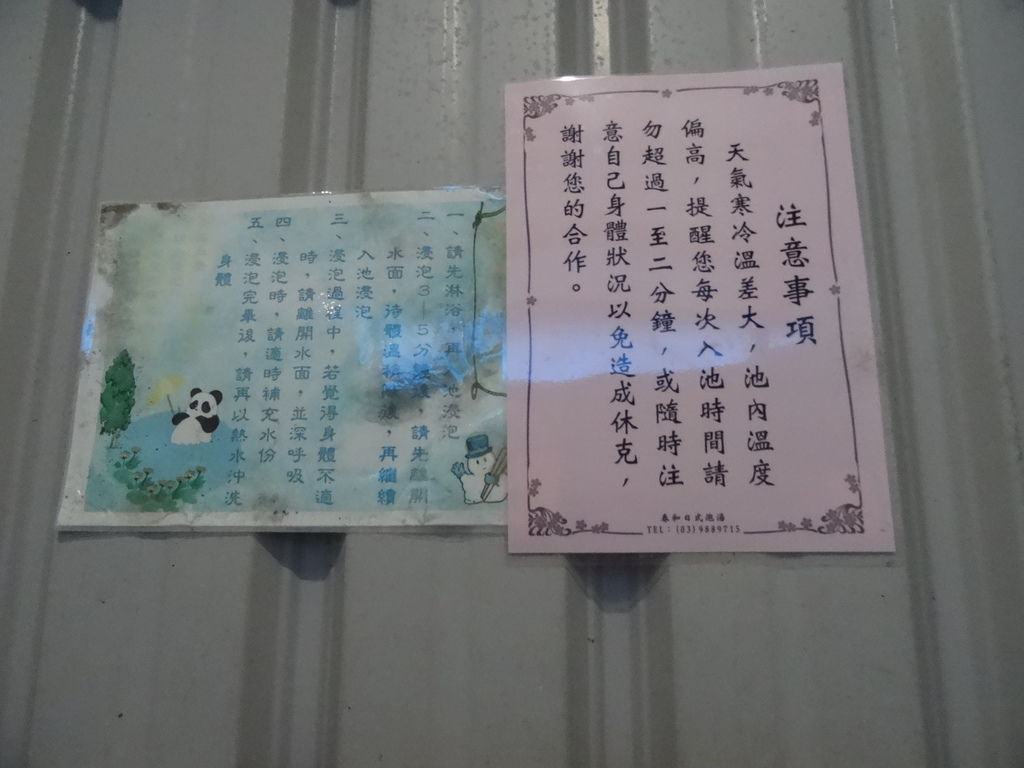 注意事項
天氣寒冷溫差大，池內溫度
偏高，提醒您每次入池時間請
勿超過一至二分鐘，或隨時注
意自己身體狀況以免造成休克，
謝謝您的合作。
泰和日式泡湯
TEL：(03)9889715
一、請先淋浴，再 池浸泡
二、浸泡3—5分 ，請先離開
水面，待體溫 ，再繼續
入池浸泡
三、浸泡過程中，若覺得身體不適
時，請離開水面，並深呼吸
四、浸泡時，請適時補充水份
五、浸泡完畢後，請再以熱水沖洗
身體